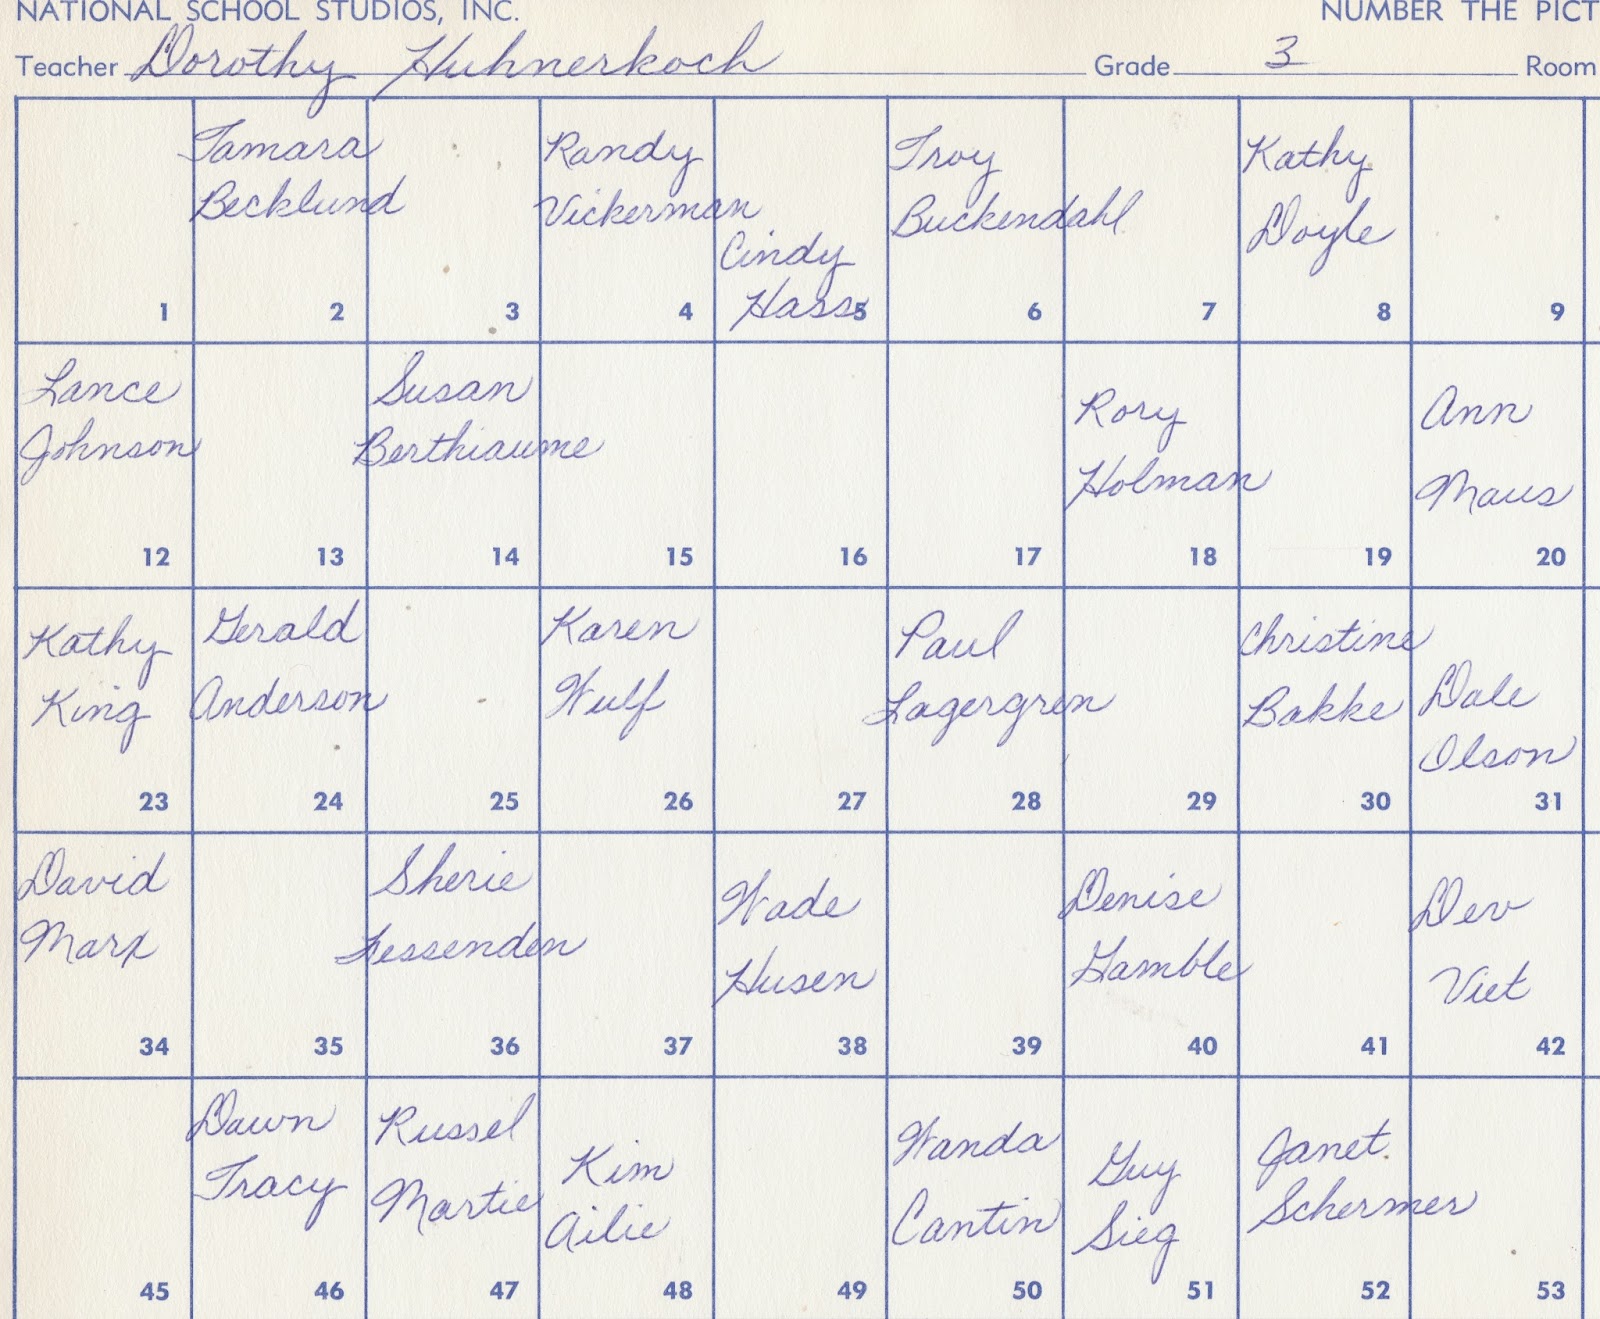 NATIONAL SCHOOL STUDIOS, INC. NUMBER THE PICT
Teacher Dorothy Huhnerkoch Grade 3 Room
Tamara Randy Troy Kathy
Becklund Vickerman Buckendahl Doyle
Cindy
Hass
1 2 3 4 5 6 7 8 9
Lance Susan Rory Ann
Johnson Berthiaume Holman Maus
12 13 14 15 16 17 18 19 20
Kathy Gerald Karen Paul Christine
King Anderson Wulf Lagergren Bakke Dale
Olson
23 24 25 26 27 28 29 30 31
David Sherie Wade Denise Dev
Marx Fessenden Husen Gamble Viet
34 35 36 37 38 39 40 41 42
Dawn Russel Kim Wanda Guy Janet
Tracy Martie Ailie Cantin Sieg Schermer
45 46 47 48 49 50 51 52 53